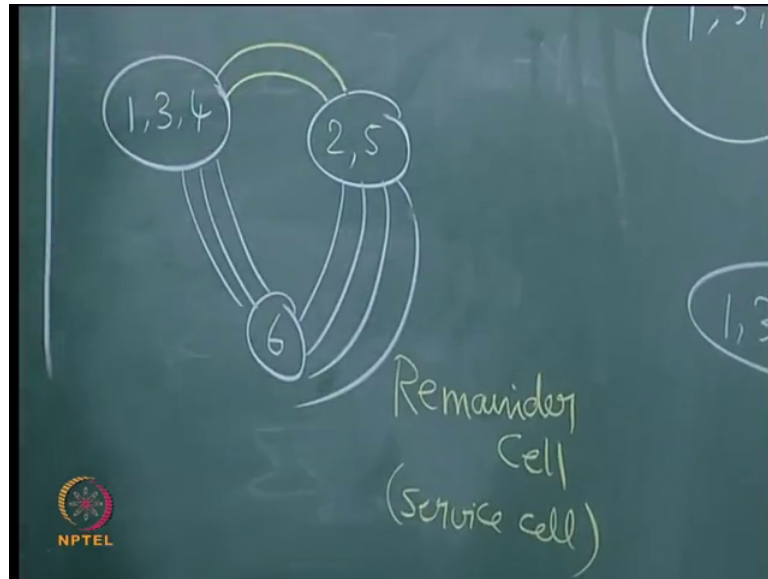 1, 3, 4
2, 5
6
Remainder
Cell
(service cell)
1, 3
NPTEL